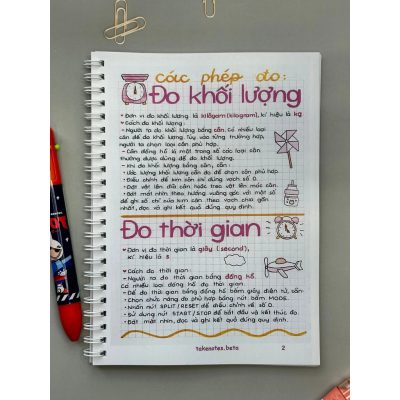 các phép đo:
Đo khối lượng
Đơn vị đo khối lượng là kilôgam (kilogram), kí hiệu là kg
Cách đo khối lượng:
- Người ta đo khối lượng bằng cân. Có nhiều loại
cân để đo khối lượng tùy vào từng trường hợp,
người ta chọn loại cân phù hợp.
- Cân đồng hồ là một trong số các loại cân
thường được dùng để đo khối lượng.
- Khi đo khối lượng bằng cân, cần:
• Ước lượng khối lượng cần đo để chọn cân phù hợp.
• Điều chỉnh để kim cân chỉ đúng vạch số 0.
• Đặt vật lên đĩa cân hoặc treo vật lên móc cân.
• Đặt mắt nhìn theo hướng vuông góc với mặt số
để ghi số chỉ của kim cân theo vạch chia gần
nhất, đọc và ghi kết quả đúng quy định.
Đo thời gian
Đơn vị đo thời gian là giây (second),
kí hiệu là s
Cách đo thời gian:
- Người ta đo thời gian bằng đồng hồ.
Có nhiều loại đồng hồ đo thời gian.
- Để đo thời gian bằng đồng hồ bấm giây điện tử, cần:
• Chọn chức năng đo phù hợp bằng nút bấm MODE.
• Nhấn nút SPLIT/RESET để điều chỉnh về số 0.
• Sử dụng nút START/STOP để bắt đầu và kết thúc đo.
• Đặt mắt nhìn, đọc và ghi kết quả đúng quy định.
takenotes.beta
2